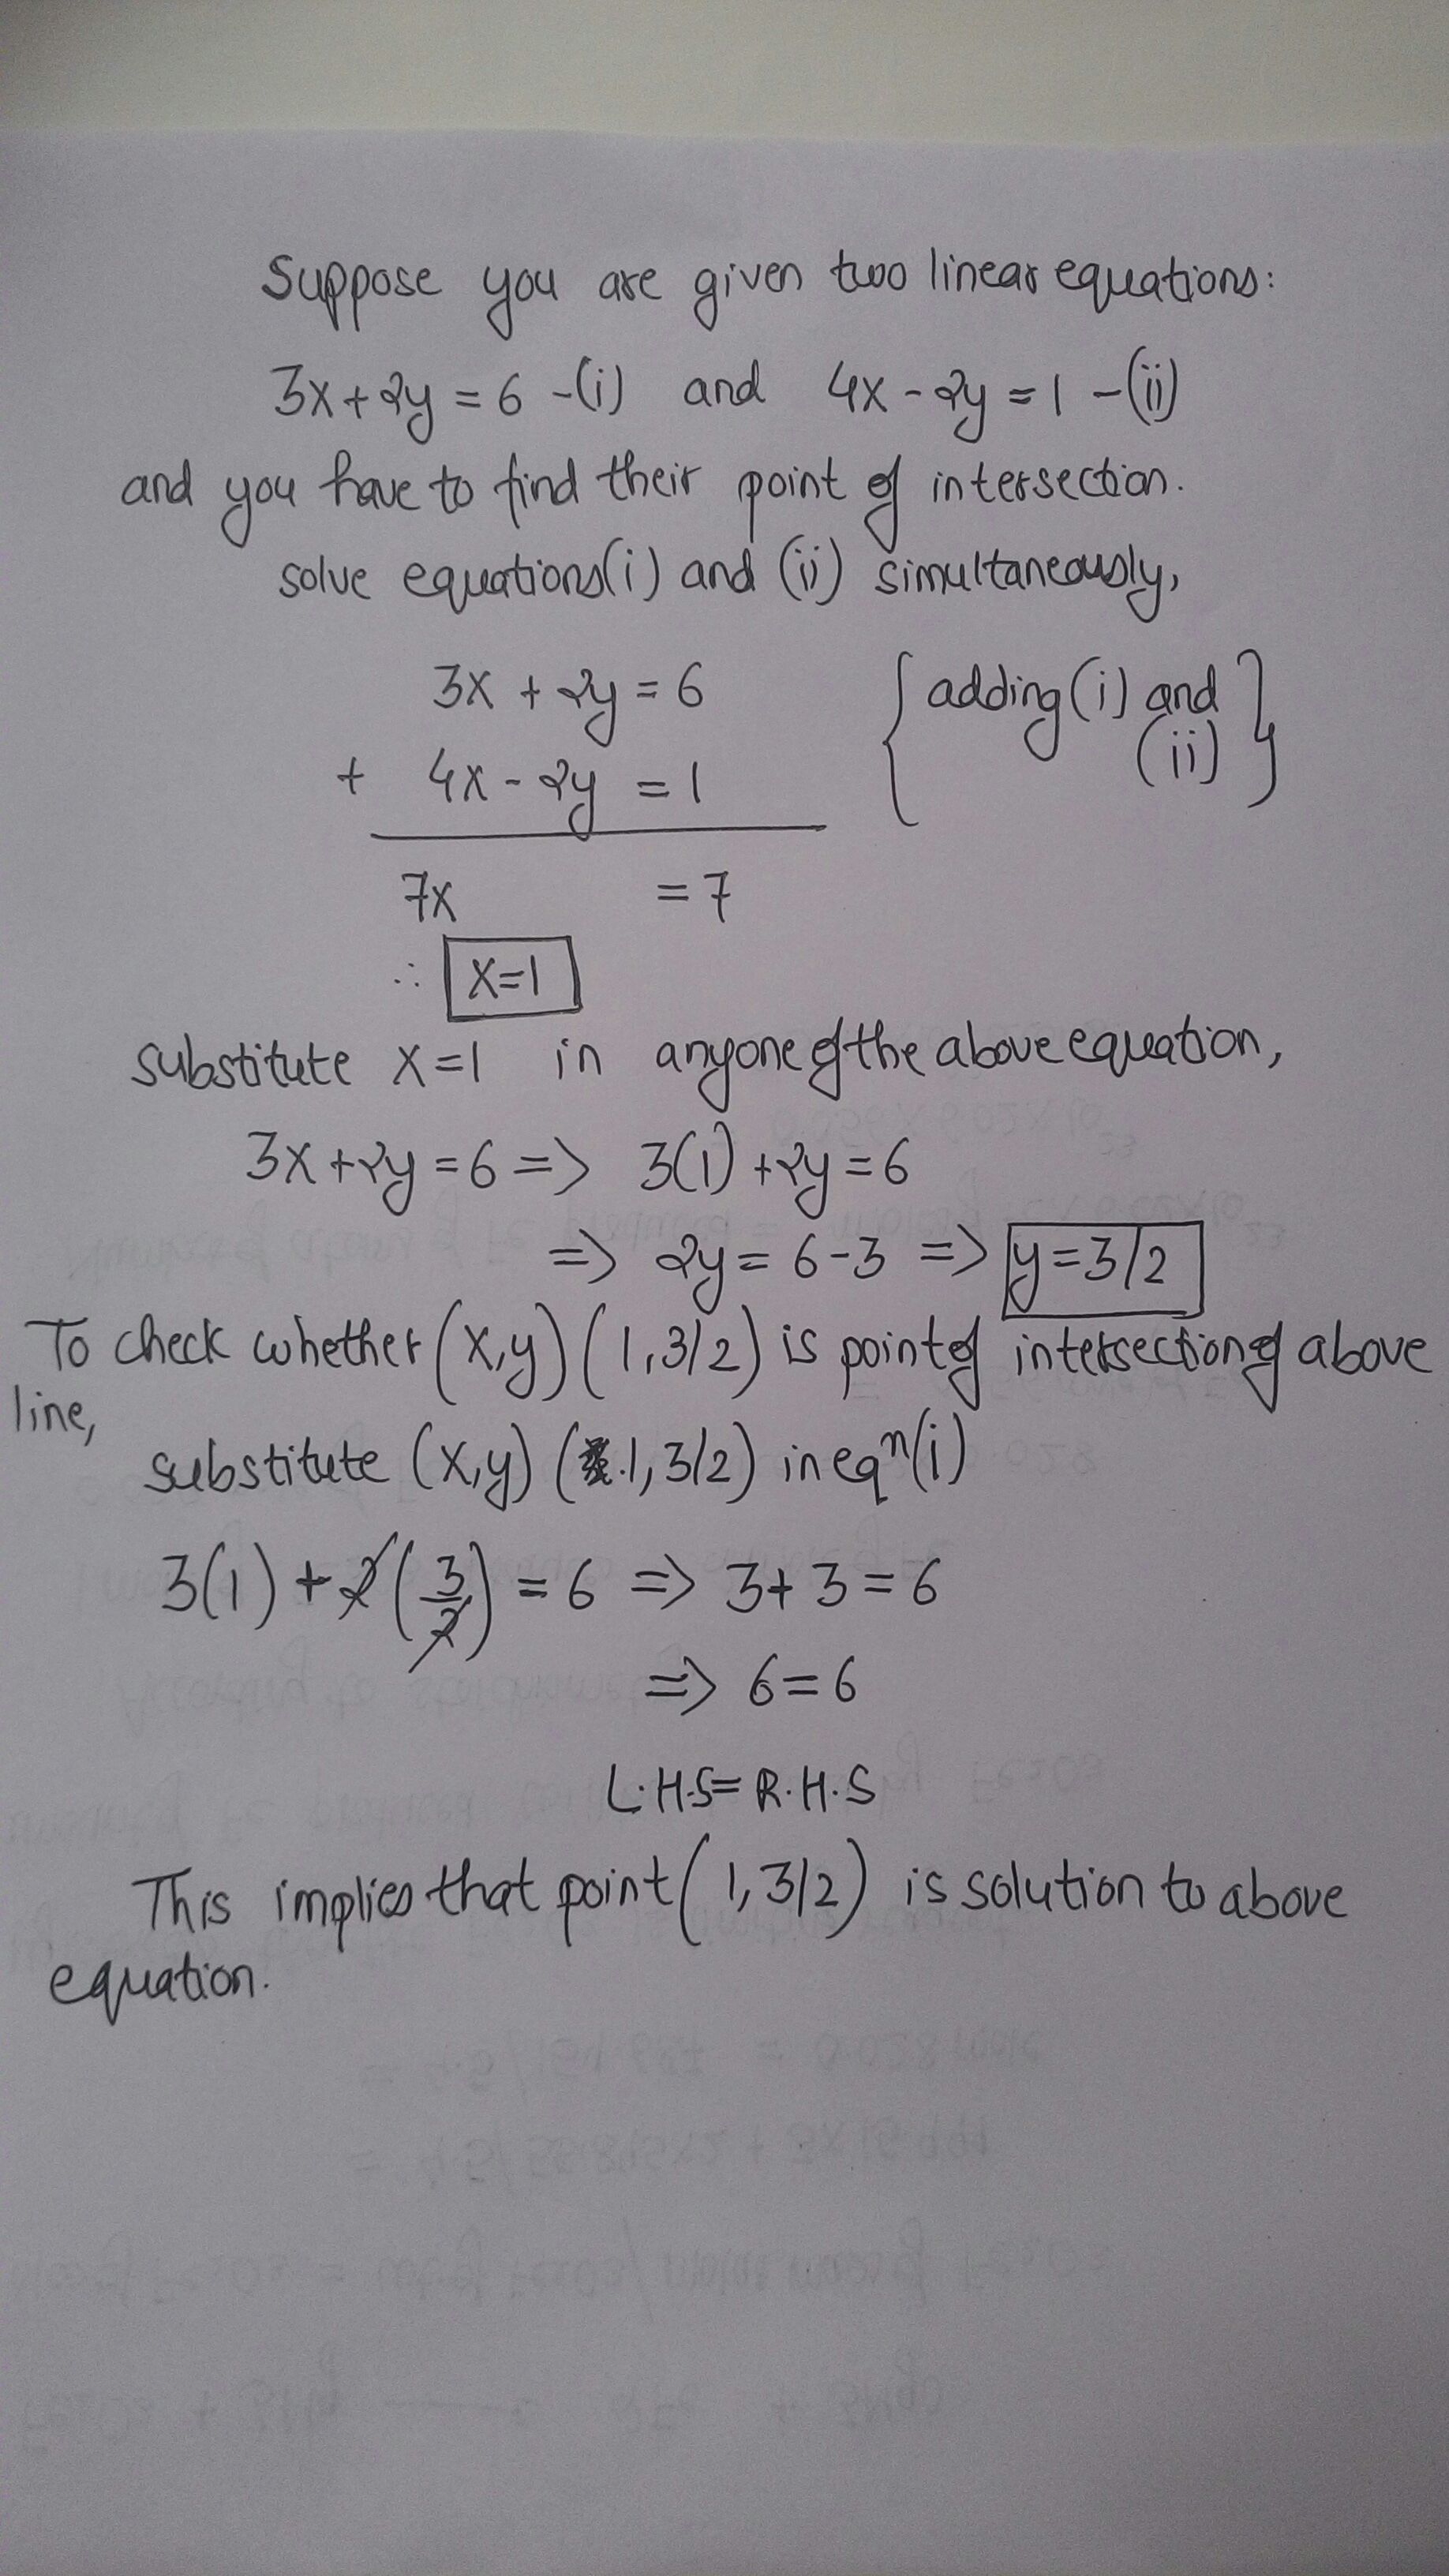 Suppose you are given two linear equations:
3x+2y = 6 -(i) and 4x - 2y = 1 -(ii)
and you have to find their point of intersection.
solve equations(i) and (ii) simultaneously,
3x + 2y = 6 { adding (i) and
(ii) }
+ 4x - 2y = 1
7x = 7
∴ x=1
substitute x=1 in anyone of the above equation,
3x+2y=6 => 3(1)+2y=6
=> 2y = 6-3 => y=3/2
To check whether (x,y) (1,3/2) is point of intersection of above
line,
substitute (x,y) (1,3/2) in eqⁿ(i)
3(1) + 2(3/2) = 6 => 3+3=6
=> 6=6
L.H.S= R.H.S
This implies that point (1,3/2) is solution to above
equation.